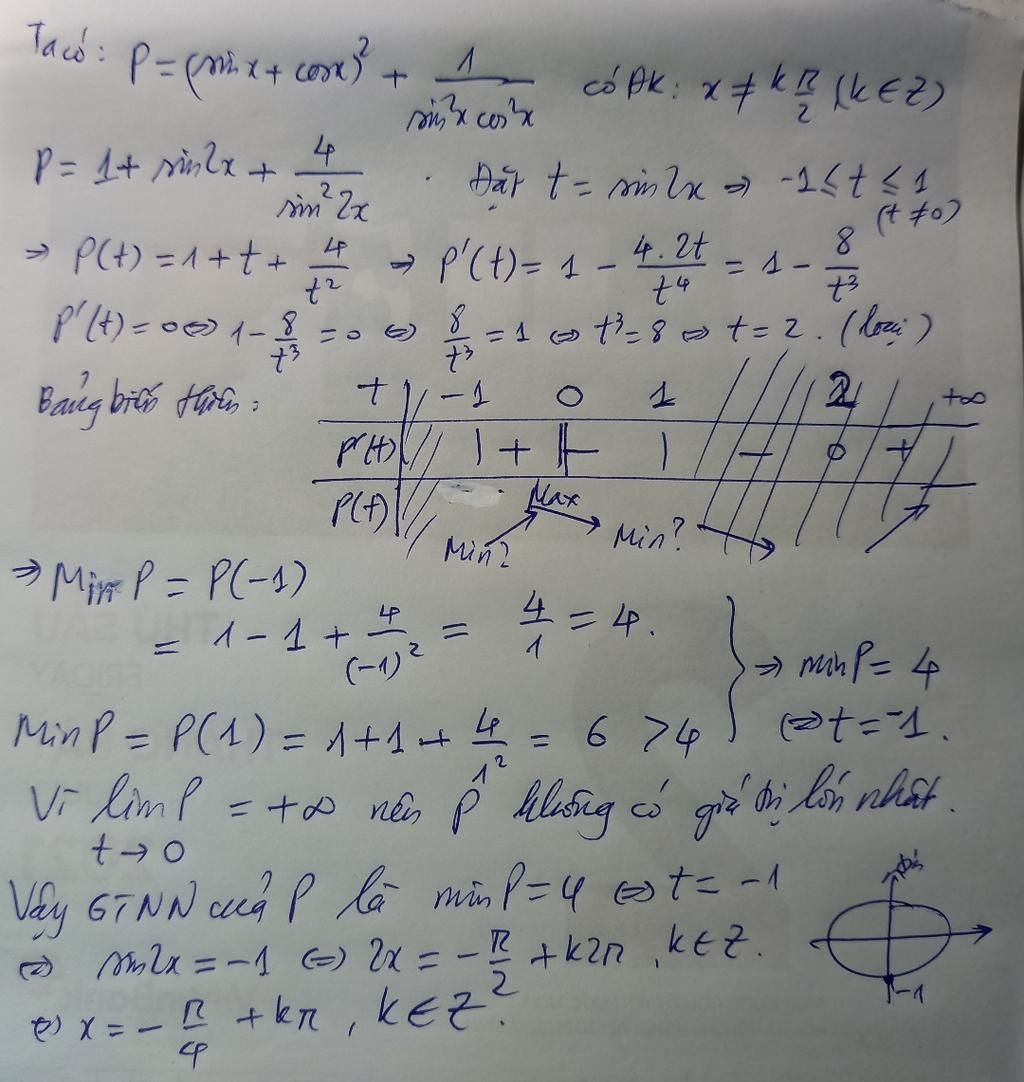 Ta có: P = (sinx + cosx)² + 1/(sin²x cos²x) có ĐK: x ≠ k π/2 (k ∈ Z)
P = 1 + sin2x + 4/(sin²2x) . Đặt t = sin2x ⇒ -1 ≤ t ≤ 1
(t ≠ 0)
⇒ P(t) = 1 + t + 4/t² ⇒ P'(t) = 1 - (4.2t)/t⁴ = 1 - 8/t³
P'(t) = 0 ⇔ 1 - 8/t³ = 0 ⇔ 8/t³ = 1 ⇔ t³ = 8 ⇔ t = 2. (loại)
Bảng biến thiên: t -1 0 1 2 +∞
P'(t) | + || - | - 0 + |
P(t) Min? Max Min?
⇒ Min P = P(-1)
= 1 - 1 + 4/(-1)² = 4/1 = 4.
⇒ min P = 4
Min P = P(1) = 1 + 1 + 4/1² = 6 > 4
⇔ t = -1.
Vì lim P = +∞ nên P không có giá trị lớn nhất.
t → 0
Vậy GTNN của P là min P = 4 ⇔ t = -1
⇔ sin2x = -1 ⇔ 2x = -π/2 + k2π, k ∈ Z.
-1
⇔ x = -π/4 + kπ, k ∈ Z.